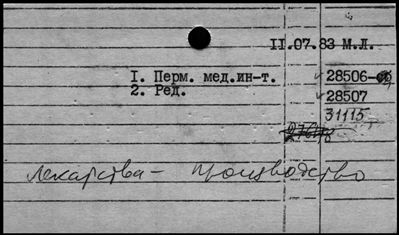 II.07.83 М.Л.
I. Перм. мед.ин-т. 28506-
2. Ред. 28507
31115
лекарства - производство